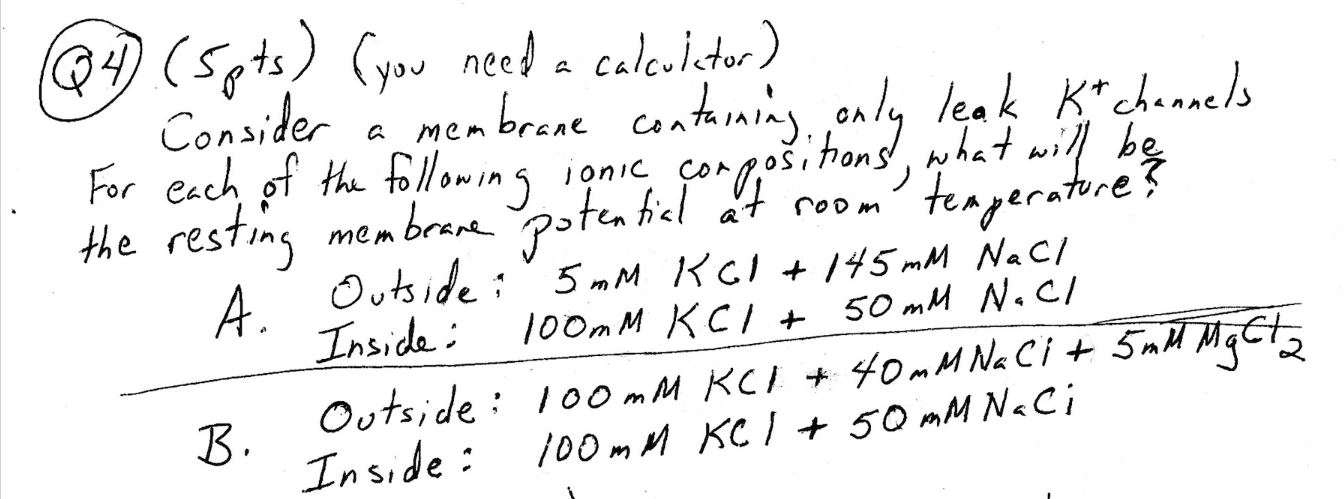 Q4 (5pts) (you need a calculator)
Consider a membrane containing only leak K+ channels
For each of the following ionic compositions, what will be
the resting membrane potential at room temperature?
A. Outside: 5mM KCl + 145mM NaCl
Inside: 100mM KCl + 50mM NaCl
B. Outside: 100mM KCl + 40mM NaCl + 5mM MgCl2
Inside: 100mM KCl + 50mM NaCl